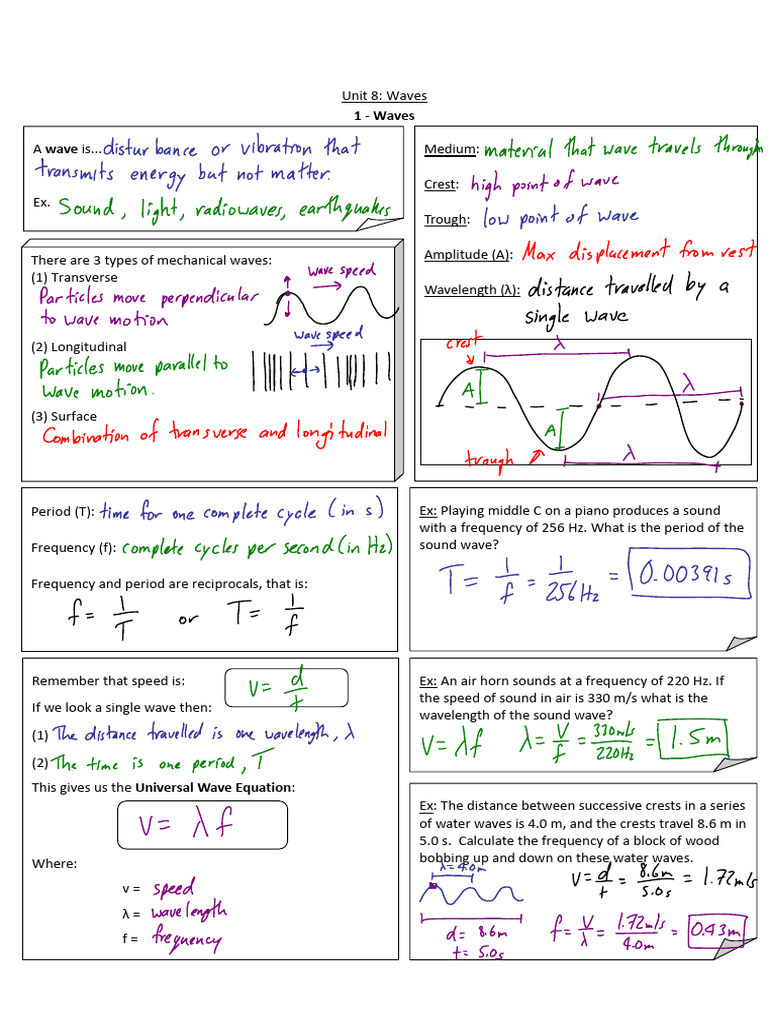 Unit 8: Waves
1 - Waves
A wave is...disturbance or vibration that
transmits energy but not matter.
Ex. Sound, light, radiowaves, earthquakes
There are 3 types of mechanical waves:
(1) Transverse
Particles move perpendicular
to wave motion
wave speed
(2) Longitudinal
Particles move parallel to
wave motion.
wave speed
(3) Surface
Combination of transverse and longitudinal
Medium: material that wave travels through
Crest: high point of wave
Trough: low point of wave
Amplitude (A): Max displacement from rest
Wavelength (λ): distance travelled by a
single wave
crest
λ
A
λ
A
trough
λ
Period (T): time for one complete cycle (in s)
Frequency (f): complete cycles per second (in Hz)
Frequency and period are reciprocals, that is:
f = 1/T or T = 1/f
Ex: Playing middle C on a piano produces a sound
with a frequency of 256 Hz. What is the period of the
sound wave?
T = 1/f = 1/256Hz = 0.00391 s
Remember that speed is:
v = d/t
If we look a single wave then:
(1) The distance travelled is one wavelength, λ
(2) The time is one period, T
This gives us the Universal Wave Equation:
v = λf
Where:
v = speed
λ = wavelength
f = frequency
Ex: An air horn sounds at a frequency of 220 Hz. If
the speed of sound in air is 330 m/s what is the
wavelength of the sound wave?
v = λf λ = v/f = 330m/s/220Hz = 1.5m
Ex: The distance between successive crests in a series
of water waves is 4.0 m, and the crests travel 8.6 m in
5.0 s. Calculate the frequency of a block of wood
bobbing up and down on these water waves.
λ = 4.0m
v = d/t = 8.6m/5.0s = 1.72m/s
d = 8.6m
t = 5.0s
f = v/λ = 1.72m/s/4.0m = 0.43m